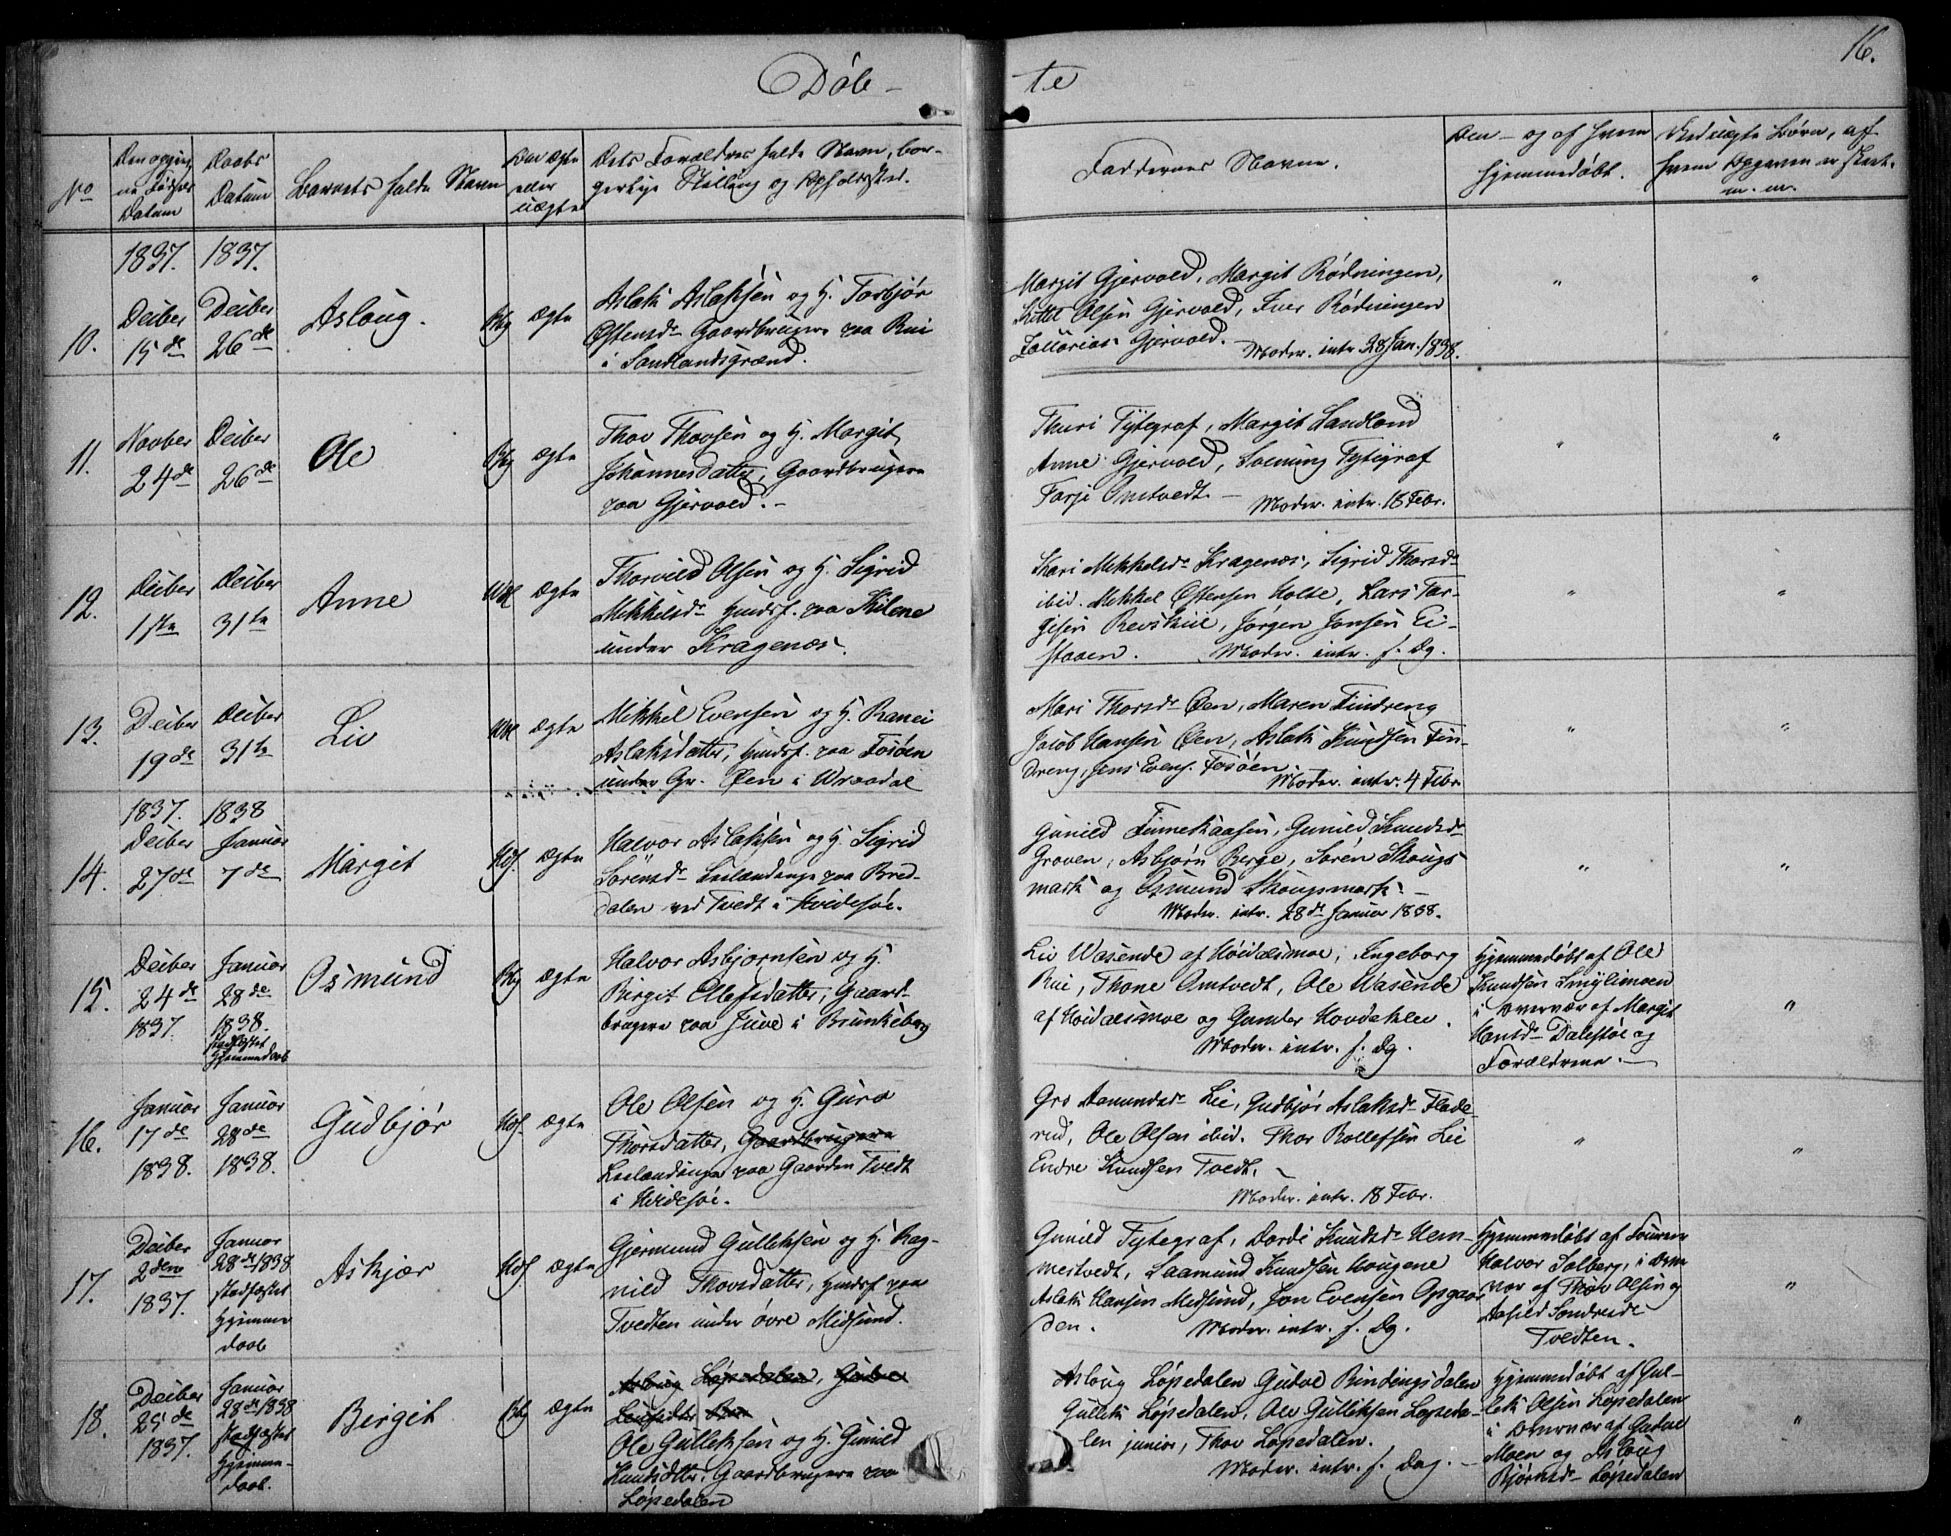 16.
Døb-
te
No
Den opgivne Fødsels Datum
Daabs Datum
Barnets fulde Navn
Om ægte eller uægte
Dets Forældres fulde Navn, borgerlige Stilling og Opholdssted.
Faddernes Navne.
Om - og af hvem hjemmedøbt.
Ved uægte Børn, af hvem Opgaven er skeet. m. m.
1837. 1837.
10.
Decber 15de
Decber 26de
Aslaug.
Bbg ægte
Aslak Aslaksen og H. Torbjør
Østensdr Gaardbrugere paa Rui
i Sandlandsgrænd.
Margit Gjervold, Margit Rødningen,
Kittel Olsen Gjervold, Iver Rødningen
Zacarias Gjervold. Moder. intr. 28 Jan. 1838.
" "
11.
Novber 24de
Decber 26de
Ole
Bbg ægte
Thov Thovsen og H. Margit
Johannesdatter, Gaardbrugere
paa Gjervold. -
Thuri Tytegraf, Margit Sandland
Anne Gjervold, Sveinung Tytegraf
Tarje Omtvedt. - Moder. intr. 18 Febr.
" "
12.
Decber 1ste
Decber 31te
Anne
ægte
Thorvild Olsen og H. Sigrid
Mikkelsdr Huusf. paa Kilene
under Kragenæs.
Kari Mikkelsdr Kragenæs, Sigrid Thorsdr
ibid. Mikkel Østensen Holte, Lars Tar-
gesen Revskiil, Jørgen Jonsen Ei-
staaen. Moder. intr. s. Dg.
" "
13.
Decber 19de
Decber 31te
Liv
ægte
Mikkel Evensen og H. Ranei
Aslaksdatter, Huusf. paa Fosøen
under Gr. Øen i Wraadal
Mari Thorsdr Øen, Maren Tindreng
Jacob Hansen Øen, Aslak Knudsen Tin-
dreng, Jens Evens. Fosøen. Moder. intr. 4 Febr
" "
1837. 1838
14.
Decber 27de
Januar 7de
Margit
Hds. ægte
Halvor Aslaksen og H. Sigrid
Sørensdr Leelændinge paa Bred-
dalen ved Tvedt i Hvidesøe.
Gunild Finnekaasen, Gunild Knudsdr
Groven, Asbjørn Berge, Søren Skougs
mark og Osmund Skougsmark. -
Moder. intr. 28de Januar 1838.
" "
15.
Decber 24de 1837.
Januar 28de 1838. stadfæstet Hjemmedaab
Osmund
Bbg ægte
Halvor Asbjørnsen og H.
Birgit Ellefsdatter, Gaard-
brugere paa Juve i Brunkeberg
Liv Wasende af Høidalsmoe, Ingeborg
Rui, Thone Omtvedt, Ole Wasende
af Høidalsmoe og Gunder Hovdeklev.
Moder. intr. s. Dg.
Hjemmedøbt af Ole
Knudsen Smylimoen
i Overvær af Margit
Hansdr Dalestøe og
Forældrene. -
"
16.
Januar 17de 1838.
Januar 28de 1838.
Gudbjør
Hds. ægte
Ole Olsen og H. Guro
Thorsdatter, Gaardbrugere
Leelændinge paa Gaarden Tvedt
i Hvidesøe.
Gro Aamundsdr Lie, Gudbjør Aslaksdr Flade-
rud, Ole Olsen ibid. Thor Rollefsen Lie
Endre Knudsen Tvedt. -
Moder. intr. 18 Febr.
" "
17.
Decber 2den 1837.
Januar 28de 1838 stadfæstet Hjemme daab
Askjær
Hds. ægte
Gjermund Gulleksen og H. Rag-
nild Thovsdatter, Huusf. paa
Tvedten under øvre Midsund.
Gunild Tytegraf, Dordi Knudsdr Hem-
mestvedt, Laamund Knudsen Hougene
Aslak Hansen Midsund, Jon Evensen Opgaar
den. Moder. intr. s. Dg.
Hjemmedøbt af
Halvor Solberg, i Over-
vær af Thov Olsen og
Sondresdr
Tvedten.
"
18.
Decber 25de 1837.
Januar 28de 1838 stadfæstet Hjemme- daab.
Bergit
Bbg ægte
Aslaug Løpedalen, Gudve
Ole Gulleksen og H. Gunild
Knudsdatter, Gaardbrugere paa
Løpedalen
Aslaug Løpedalen Gudve Bindingsdalen
Gullek Løpedalen, Ole Gulleksen Løpeda-
len junior, Thov Løpedalen.
Moder. intr. s. Dag. -
Hjemmedøbt af Gul-
lek Olsen Løpedalen
i Overvær af Gudve
Moen og Aslaug
Bjørnsdr Løpedalen
"